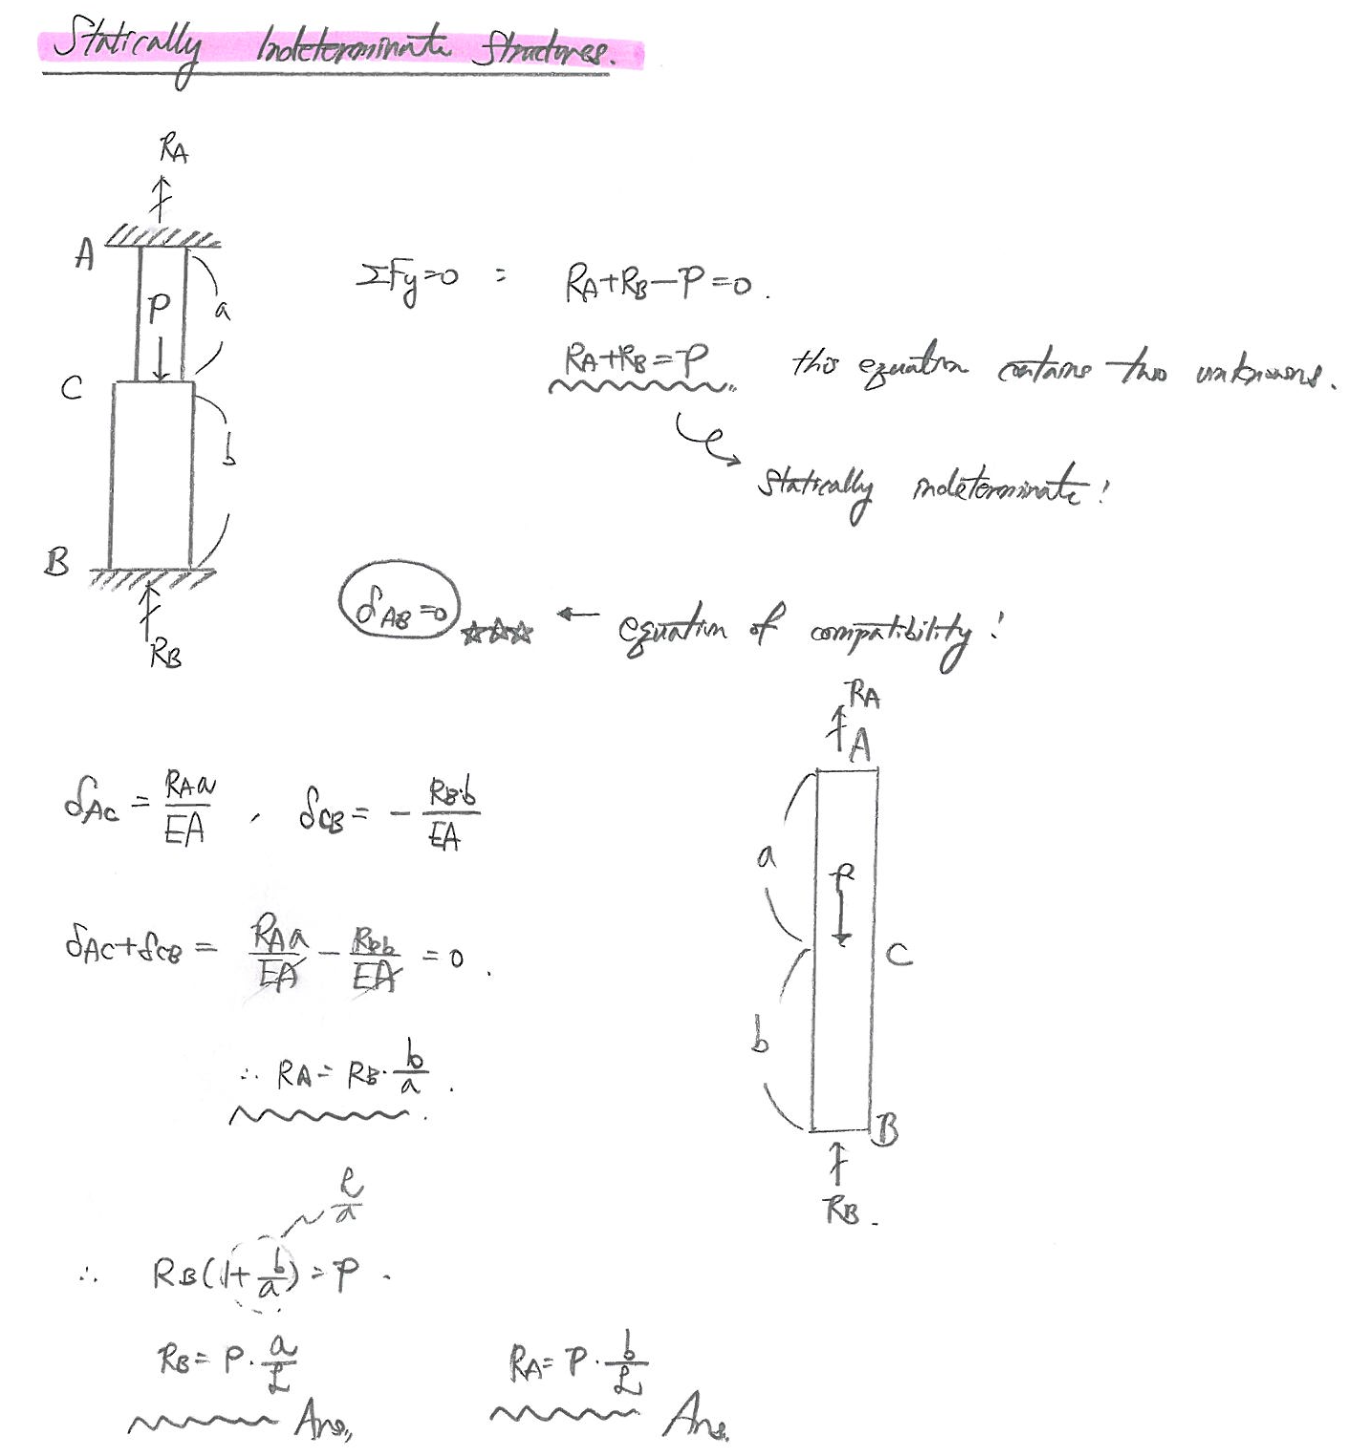 Statically Indeterminate Structures.
RA
A
P
a
C
b
B
RB
ΣFy=0 : RA+RB−P=0.
RA+RB=P this equation contains two unknowns.
Statically indeterminate!
δAB=0 ☆☆☆ ← equation of compatibility!
δAC = RAa/EA , δCB = − RB·b/EA
δAC+δCB = RAa/EA − RBb/EA = 0 .
∴ RA = RB· b/a .
RA
A
a
P
C
b
B
RB .
ℓ/a
∴ RB(1+ b/a) = P .
RB = P· a/L RA = P· b/L
Ans,, Ans.